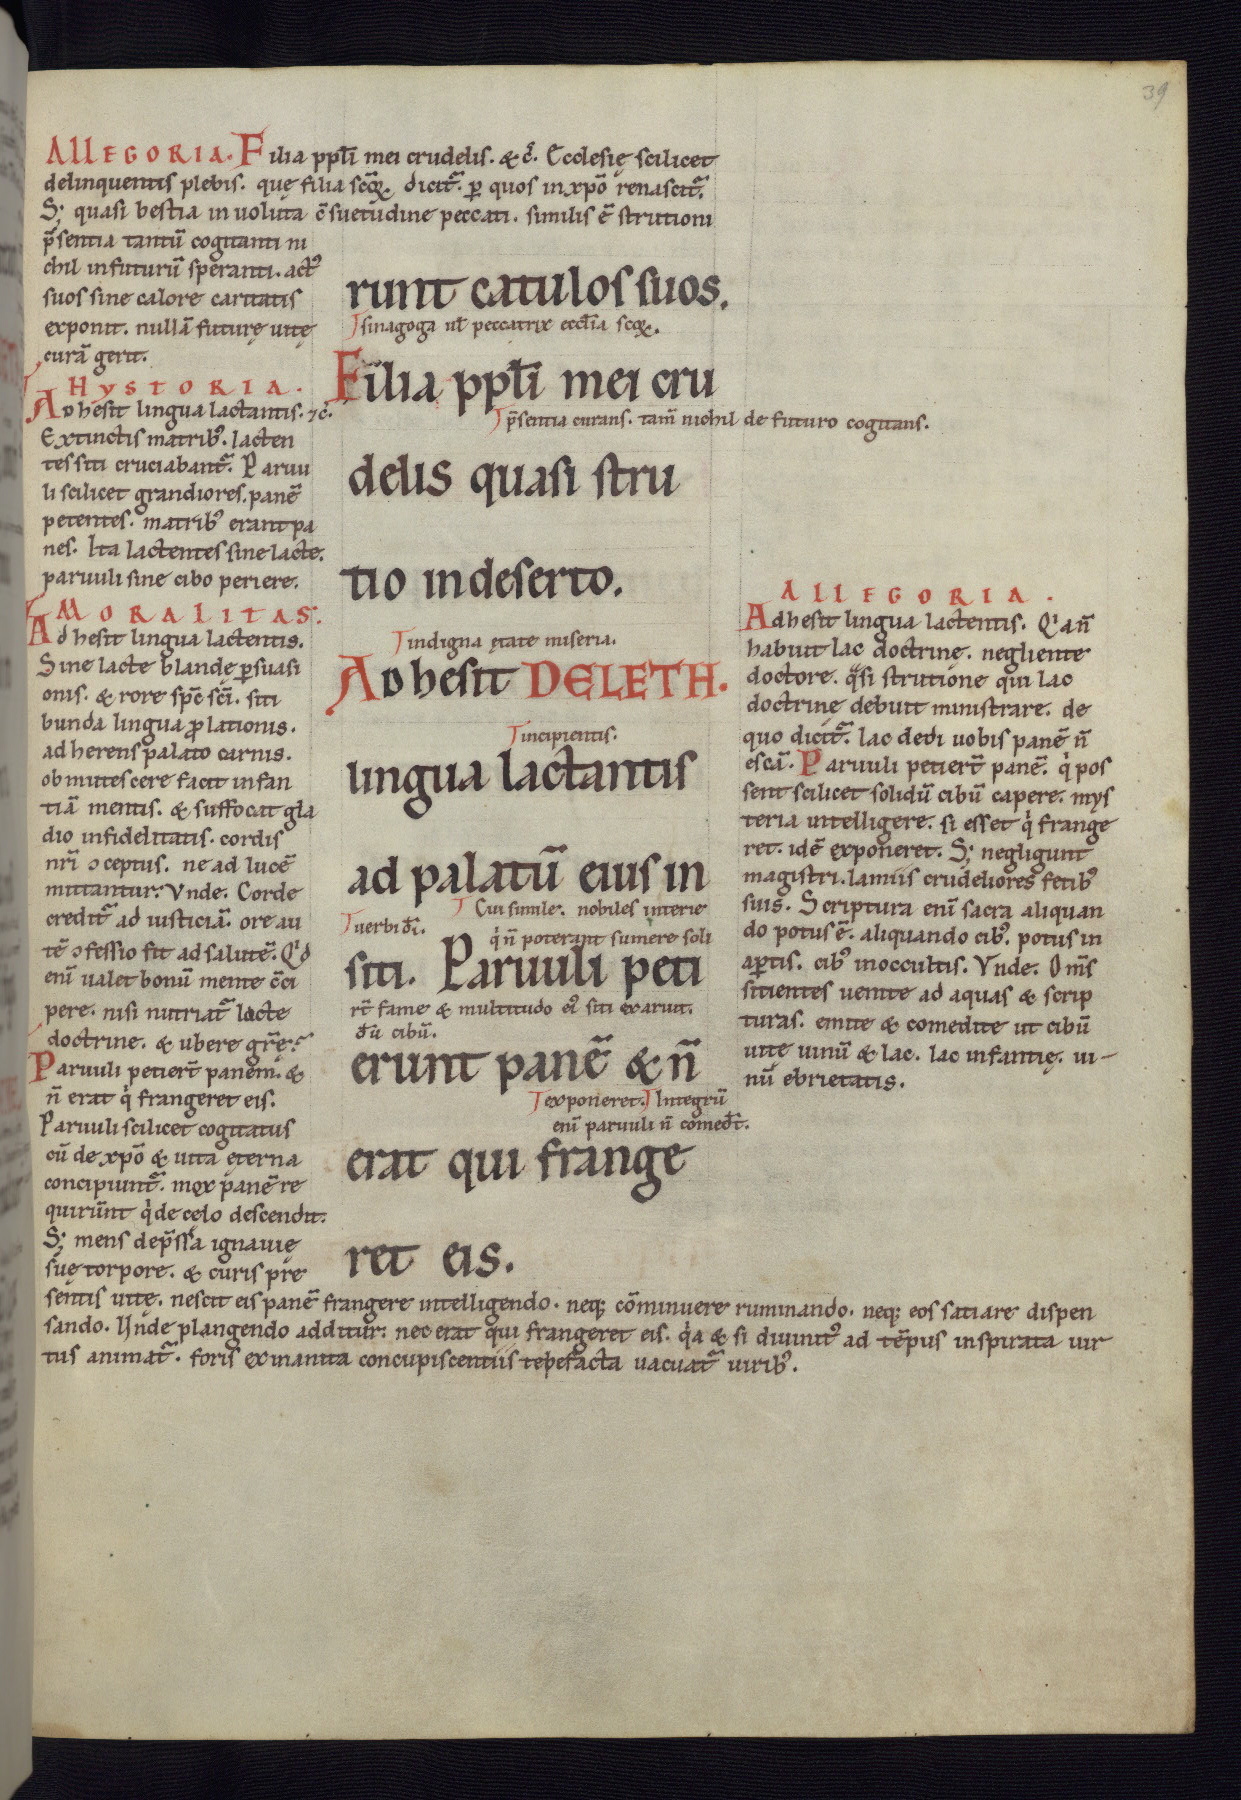 39
ALLEGORIA. Filia ppłi mei crudelis. & c̃. Ecclesię scilicet
delinquentis plebis. quę filia scōꝝ dicit̃. ꝑ quos in xpō renascit̃.
S; quasi bestia in uoluta c̄suetudine peccati. similis ē strutioni
p̄sentia tantū cogitanti ni
chil in futurū speranti. act᾽
suos sine calore caritatis
exponit. nullā futurę uitę
curā gerit.
HYSTORIA.
Adhesit lingua lactantis. ⁊c̃.
Extinctis matrib᾽. lacten
tes siti cruciabant̃. Paruu
li scilicet grandiores. panē
petentes. matrib᾽ erant pa
nes. Ita lactentes sine lacte.
paruuli sine cibo periere.
MORALITAS.
Adhesit lingua lactentis.
Sine lacte blandę ꝑsuasi
onis. & rore spc̄ sc̄i. siti
bunda lingua ꝓlationis.
adherens palato carnis.
obmutescere facit infan
tiā mentis. & suffocat gla
dio infidelitatis. cordis
nr̄i ɔceptus. ne ad lucē
mittantur. Vnde. Corde
credit̃ ad iusticiā. ore au
tē ɔfessio fit ad salutē. Qͥd
enī ualet bonū mente c̄ci
pere. nisi nutriat̃ lacte
doctrine. & ubere grē.
Paruuli petier̄t panem. &
n̄ erat qͥ frangeret eis.
Paruuli scilicet cogitatus
cū de xpō & uita ęterna
concipiunt̃. mox panē re
quirunt qͥ de celo descendit.
S; mens dep̄ssa ignauię
suę torpore. & curis prę
sentis uitę. nescit eis panē frangere intelligendo. neq; cōminuere ruminando. neq; eos satiare dispen
sando. Vnde plangendo additur. nec erat qui frangeret eis. qͥa & si diuinit᾽ ad tēpus inspirata uir
tus animat̃. foris exinanita concupiscentiis tepefacta uacuat̃ uirib᾽.
runt catulos suos.
sinagoga ul̄ peccatrix eccłia scōꝝ.
Filia ppłi mei cru
p̄sentia curans. tam̄ nichil de futuro cogitans.
delis quasi stru
tio in deserto.
indigna ętate miseria.
Adhesit DELETH.
incipientis.
lingua lactantis
ad palatū eius in
Cui simile. nobiles interie
uerbi dī.
qͥ n̄ poterant sumere soli
siti. Paruuli peti
rt̄ fame & multitudo ei᾽ siti exaruit.
dū cibū.
erunt panē & n̄
exponeret. Integrū
enī paruuli n̄ comedt̄.
erat qui frange
ret eis.
ALLEGORIA.
Adhesit lingua lactentis. Qͥa n̄
habuit lac doctrinę. negliente
doctore. qͣsi strutione qui lac
doctrinę debuit ministrare. de
quo dicit̃. lac dedi uobis panē n̄
escā. Paruuli petier̄t panē. qͥ pos
sent scilicet solidū cibū capere. mys
teria intelligere. si esset qͥ frange
ret. idē exponeret. S; negligunt
magistri. lamiis crudeliores fetib᾽
suis. Scriptura enī sacra aliquan
do potus ē. aliquando cib᾽. potus in
aꝑtis. cib᾽ in occultis. Vnde. Om̄s
sitientes uenite ad aquas & scrip
turas. emite & comedite ut cibū
uite uinū & lac. lac infantię. ui-
nū ebrietatis.